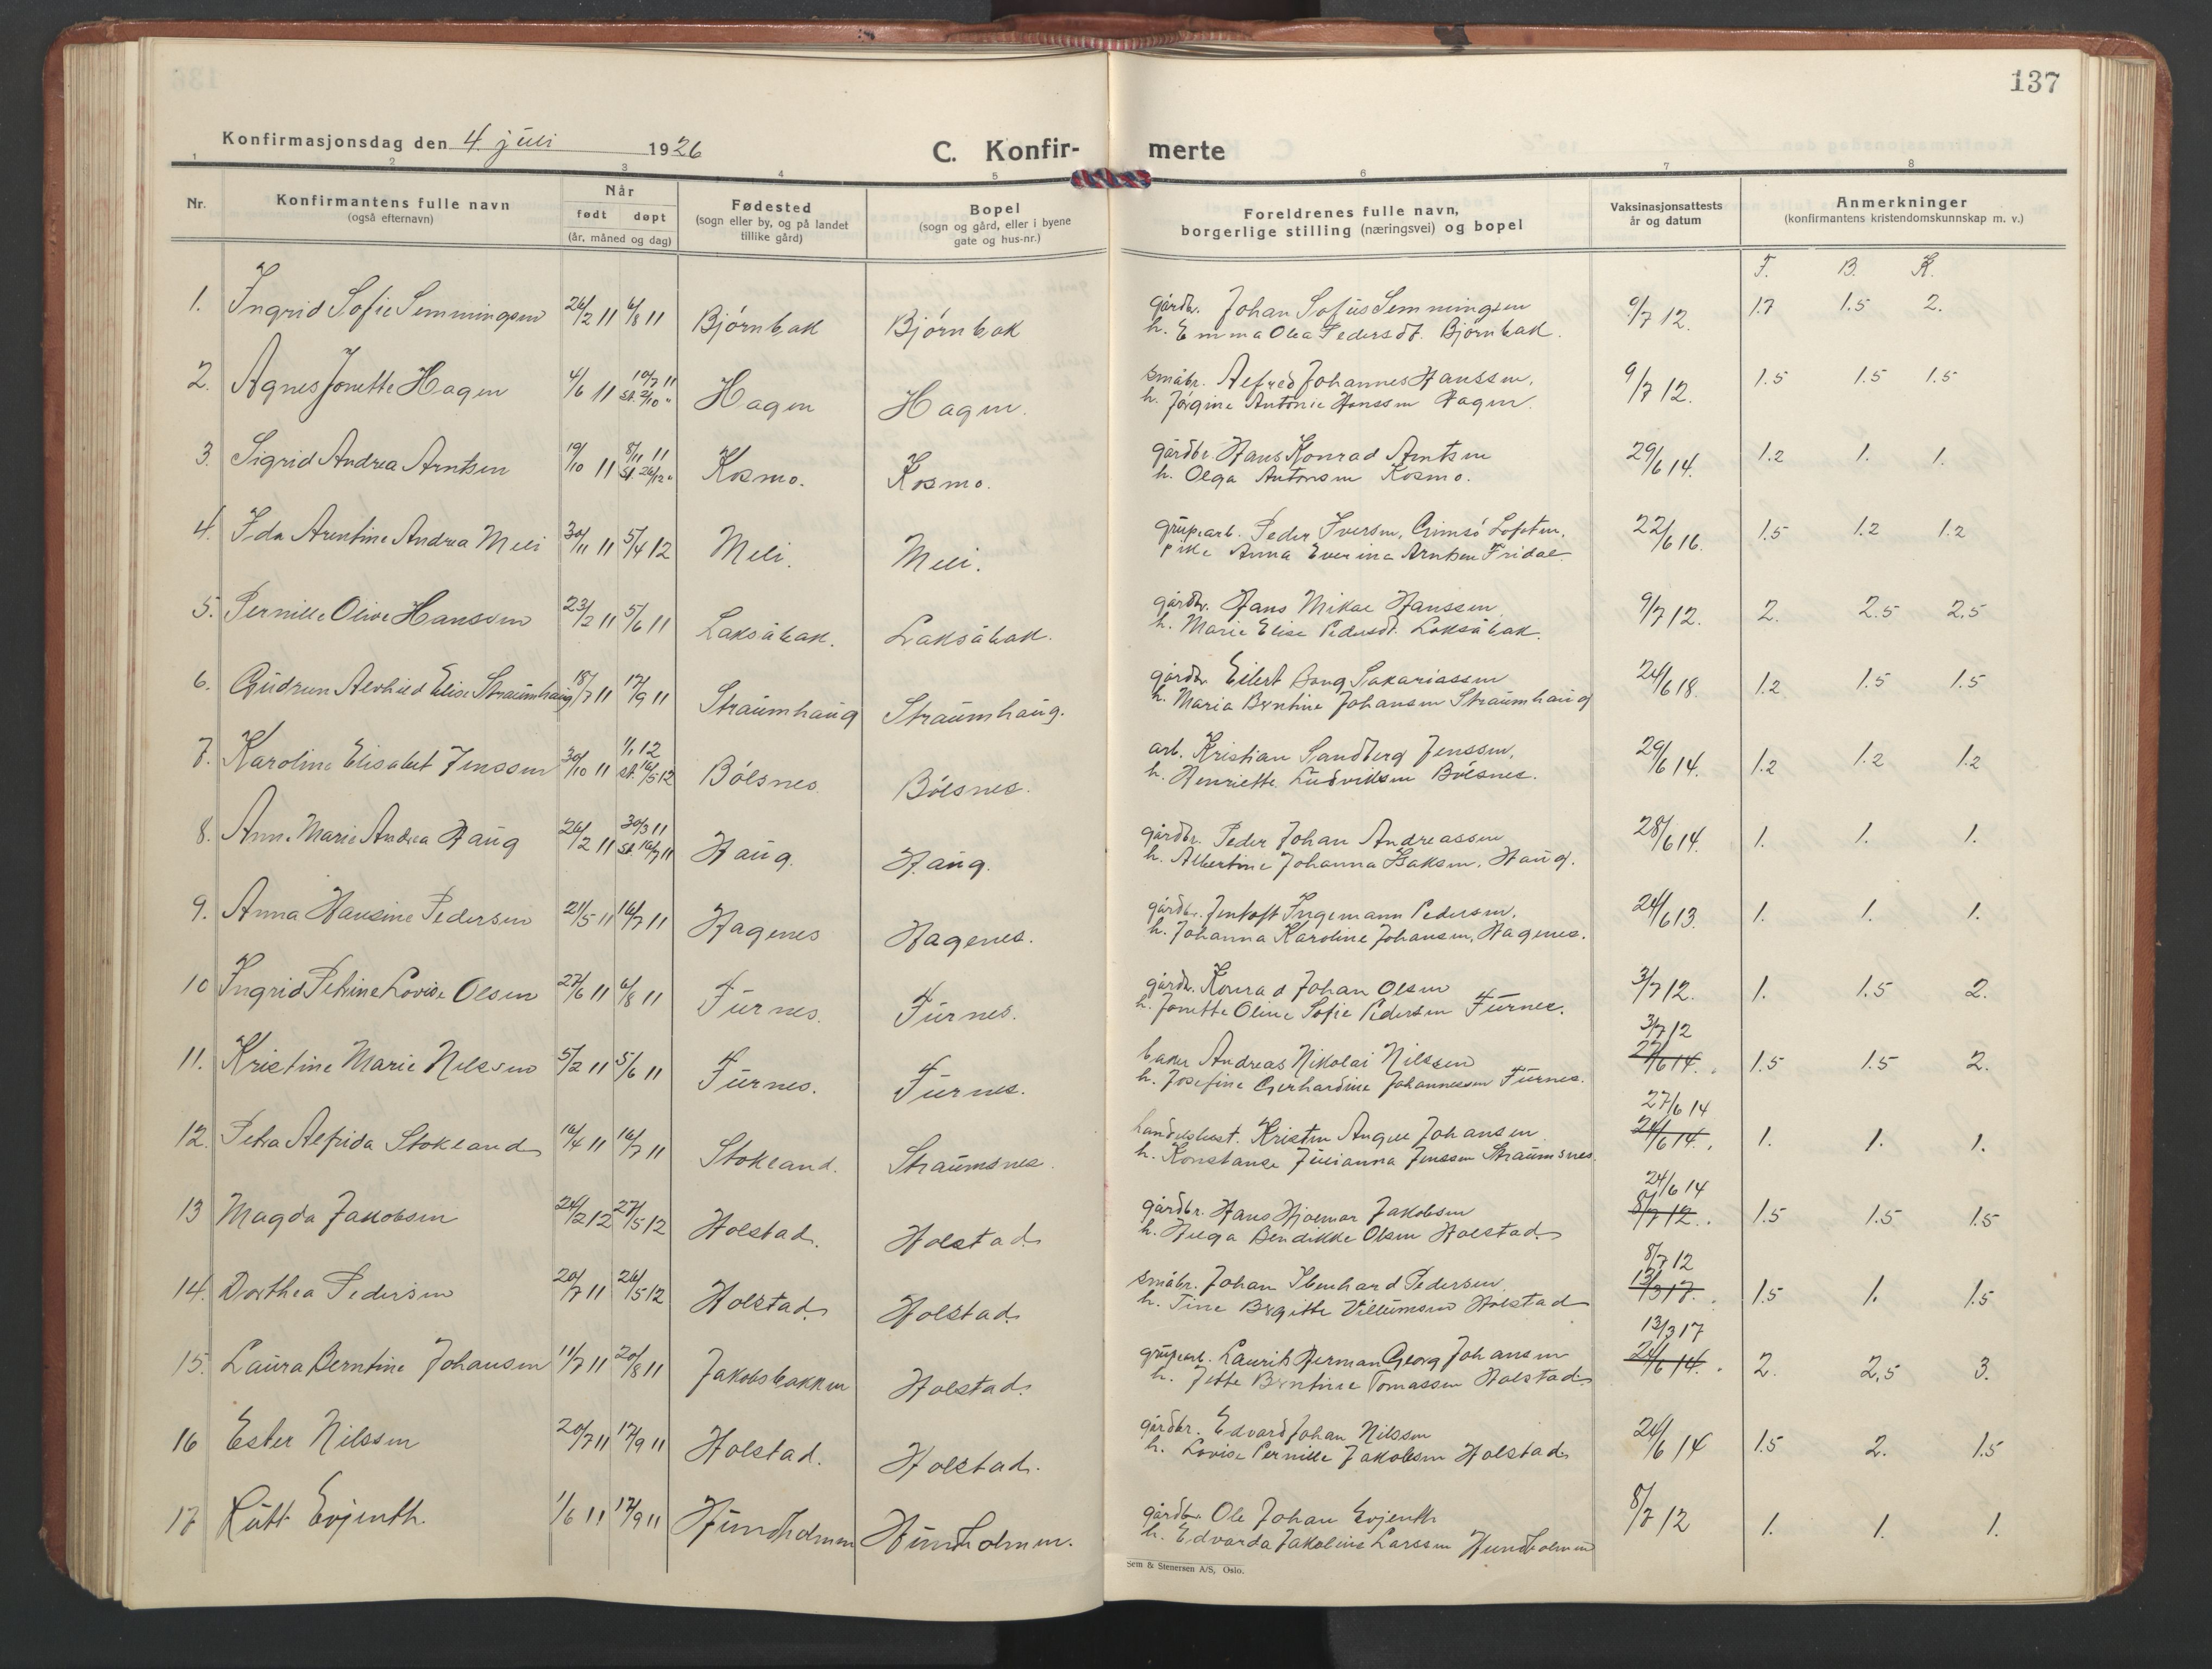 137
Konfirmasjonsdag den 4. juli 1926
C. Konfir- merte
1 2 3 4 5 6 7 8
Nr.
Konfirmantens fulle navn
(også efternavn)
Når
født døpt
(år, måned og dag)
Fødested
(sogn eller by, og på landet
tillike gård)
Bopel
(sogn og gård, eller i byene
gate og hus-nr.)
Foreldrenes fulle navn,
borgerlige stilling (næringsvei) og bopel
Vaksinasjonsattests
år og datum
Anmerkninger
(konfirmantens kristendomskunnskap m. v.)
F. B. K.
1. Ingrid Sofie Semmingsen 26/2 11 6/8 11 Bjørnbak Bjørnbak gårdbr. Johan Sofus Semmingsen 9/7 12. 1.7 1.5 2.
h. Emma Olea Pedersdt. Bjørnbak.
2. Agnes Jonette Hagen 4/6 11 10/7 11 st. 2/10 " Hagen Hagen. småbr. Alfred Johannes Hanssen. 9/7 12. 1.5 1.5 1.5
h. Jørgine Antonie Hanssen Hagen.
3. Sigrid Andrea Arntsen 19/10 11 8/11 11 st. 26/12 " Kosmo. Kosmo. gårdbr Hans Konrad Arntsen 29/6 14. 1.2 1. 1.
h. Olga Antonsen Kosmo.
4. Ida Arentine Andrea Meli 30/11 11 5/4 12 Meli. Meli. grupearb. Peder Iversen, Gimsö Lofoten. 22/6 16. 1.5 1.2 1.2
pike Anna Everina Arntsen Fridal
5. Pernille Olive Hanssen 23/2 11 5/6 11 Laksåbak. Laksåbak. gårdbr. Hans Mikal Hanssen 9/7 12. 2. 2.5 2.5
h. Marie Elise Pedersdt. Laksåbak.
6. Gudrun Alvhild Elise Straumhaug 18/7 11 17/9 11 Straumhaug Straumhaug. gårdbr Eilert Bang Sakariassen 24/6 18. 1.2 1.5 1.5
h. Maria Berntine Johansen Straumhaug
7. Karoline Elisabet Jenssen 30/10 11 1/1 12 st. 16/5 12 Bólsnes Bólsnes. arb. Kristian Sandberg Jenssen, 29/6 14. 1.2 1.2 1.2
h. Henriette Ludviksen Bólsnes.
8. Anne Marie Andrea Haug 26/2 11 30/3 11 st. 16/7 11 Haug. Haug. gårdbr. Peder Johan Andreassen 28/6 14. 1. 1. 1.
h. Albertine Johanna Isaksen, Haug.
9. Anna Hansine Pedersen 21/5 11 16/7 11 Hagenes Hagenes. gårdbr. Jentoft Ingemann Pedersen. 24/6 13. 1. 1. 1.
h. Johanna Karoline Johansen, Hagenes.
10 Ingrid Petrine Lovise Olsen 27/6 11 6/8 11 Furnes. Furnes. gårdbr. Konrad Johan Olsen 3/7 12. 1. 1.5 2.
h. Jonette Oline Sofie Pedersen Furnes.
11. Kristine Marie Nilssen 5/2 11 5/6 11 Furnes. Furnes. baker Andreas Nikolai Nilssen 3/7 12 27/6 14. 1.5 1.5 2.
h. Josefine Gerhardine Johannessen Furnes.
12. Petra Alfrida Stokland 16/4 11 16/7 11 Stokland. Straumsnes. handelsbest. Kristen Angell Johansen 27/6 14 24/6 14. 1. 1. 1.
h. Konstanse Julianna Jenssen Straumsnes.
13 Magda Jakobsen 24/2 12 27/5 12 Holstad. Holstad. gårdbr. Hans Hjalmar Jakobsen 24/6 14 8/7 12. 1.5 1.5 1.5
h. Helga Bendikke Olsen Holstad.
14. Dorthea Pedersen 20/7 11 26/5 12 Holstad. Holstad. småbr. Johan Ibenhard Pedersen. 8/7 12 13/3 17. 1.5 1. 1.5
h. Tine Birgitte Villumsen Holstad
15. Laura Berntine Johansen 11/7 11 20/8 11 Jakobsbakken Holstad. grupearb. Laurits Herman Georg Johansen 13/3 17 24/6 14. 2. 2,5 3.
h. Jette Berntine Tomassen Holstad.
16 Ester Nilssen 20/7 11 17/9 11 Holstad. Holstad. gårdbr. Edvard Johan Nilssen 24/6 14 1.5 2. 1.5
h. Lovise Pernille Jakobsen Holstad.
17 Rutt Evjenth. 1/6 11 17/9 11 Hundholmen Hundholmen. gårdbr. Ole Johan Evjenth 8/7 12 1. 1. 1.
h. Edvarda Jakobine Larssen Hundholmen
Sem & Stenersen A/S, Oslo.